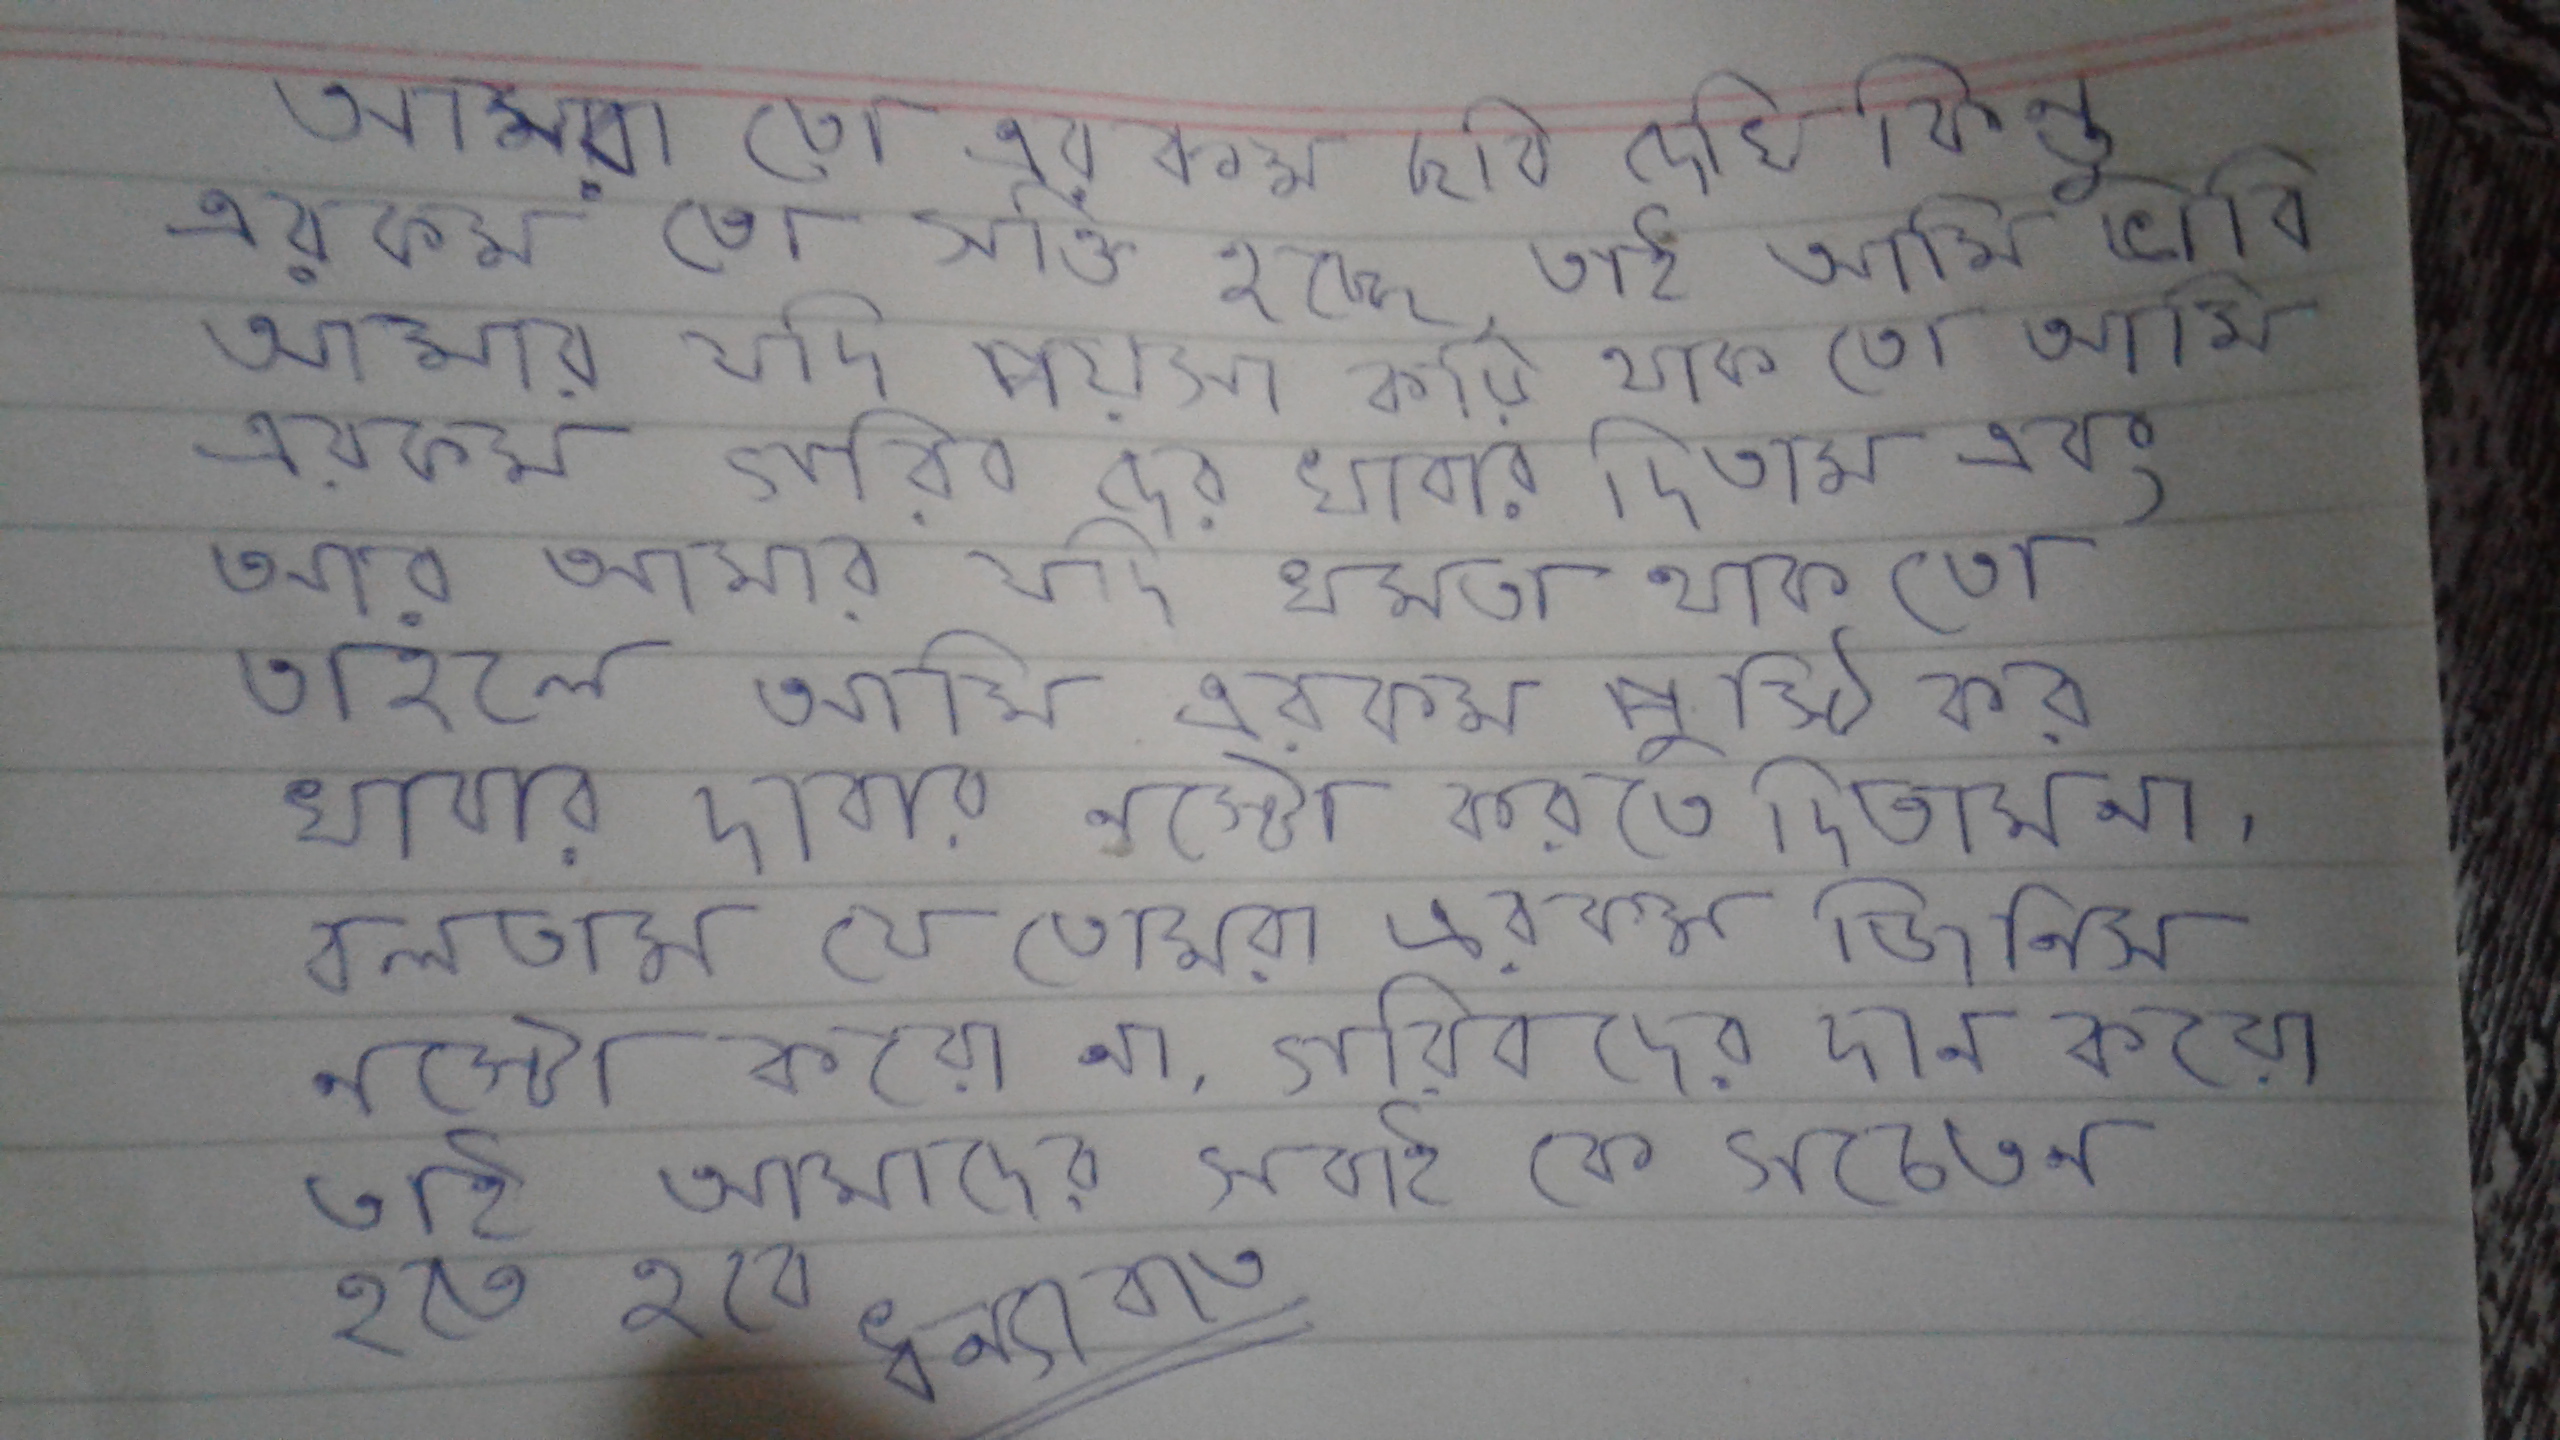 আমরা তো এরকম ছবি দেখি কিন্তু
এরকম তো সত্তি হচ্ছে, তাই আমি ভাবি
আমার যদি পয়সা করি থাক তো আমি
এরকম গরিব দের খাবার দিতাম এবং
আর আমার যদি খমতা থাক তো
তাহলে আমি এরকম পুস্টি কর
খাবার দাবার নস্টো করতে দিতাম না,
বলতাম যে তোমরা এরকম জিনিস
নস্টো করো না, গরিবদের দান করো
তাই আমাদের সবাই কে সচেতন
হতে হবে ধন্যাবাত